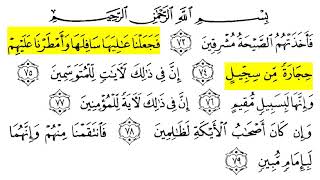 بِسْمِ اللَّهِ الرَّحْمَٰنِ الرَّحِيمِ
فَأَخَذَتْهُمُ الصَّيْحَةُ مُشْرِقِينَ ٧٣ فَجَعَلْنَا عَالِيَهَا سَافِلَهَا وَأَمْطَرْنَا عَلَيْهِمْ
حِجَارَةً مِّن سِجِّيلٍ ٧٤ إِنَّ فِي ذَٰلِكَ لَآيَاتٍ لِّلْمُتَوَسِّمِينَ ٧٥
وَإِنَّهَا لَبِسَبِيلٍ مُّقِيمٍ ٧٦ إِنَّ فِي ذَٰلِكَ لَآيَةً لِّلْمُؤْمِنِينَ ٧٧
وَإِن كَانَ أَصْحَابُ الْأَيْكَةِ لَظَالِمِينَ ٧٨ فَانتَقَمْنَا مِنْهُمْ وَإِنَّهُمَا
لَبِإِمَامٍ مُّبِينٍ ٧٩